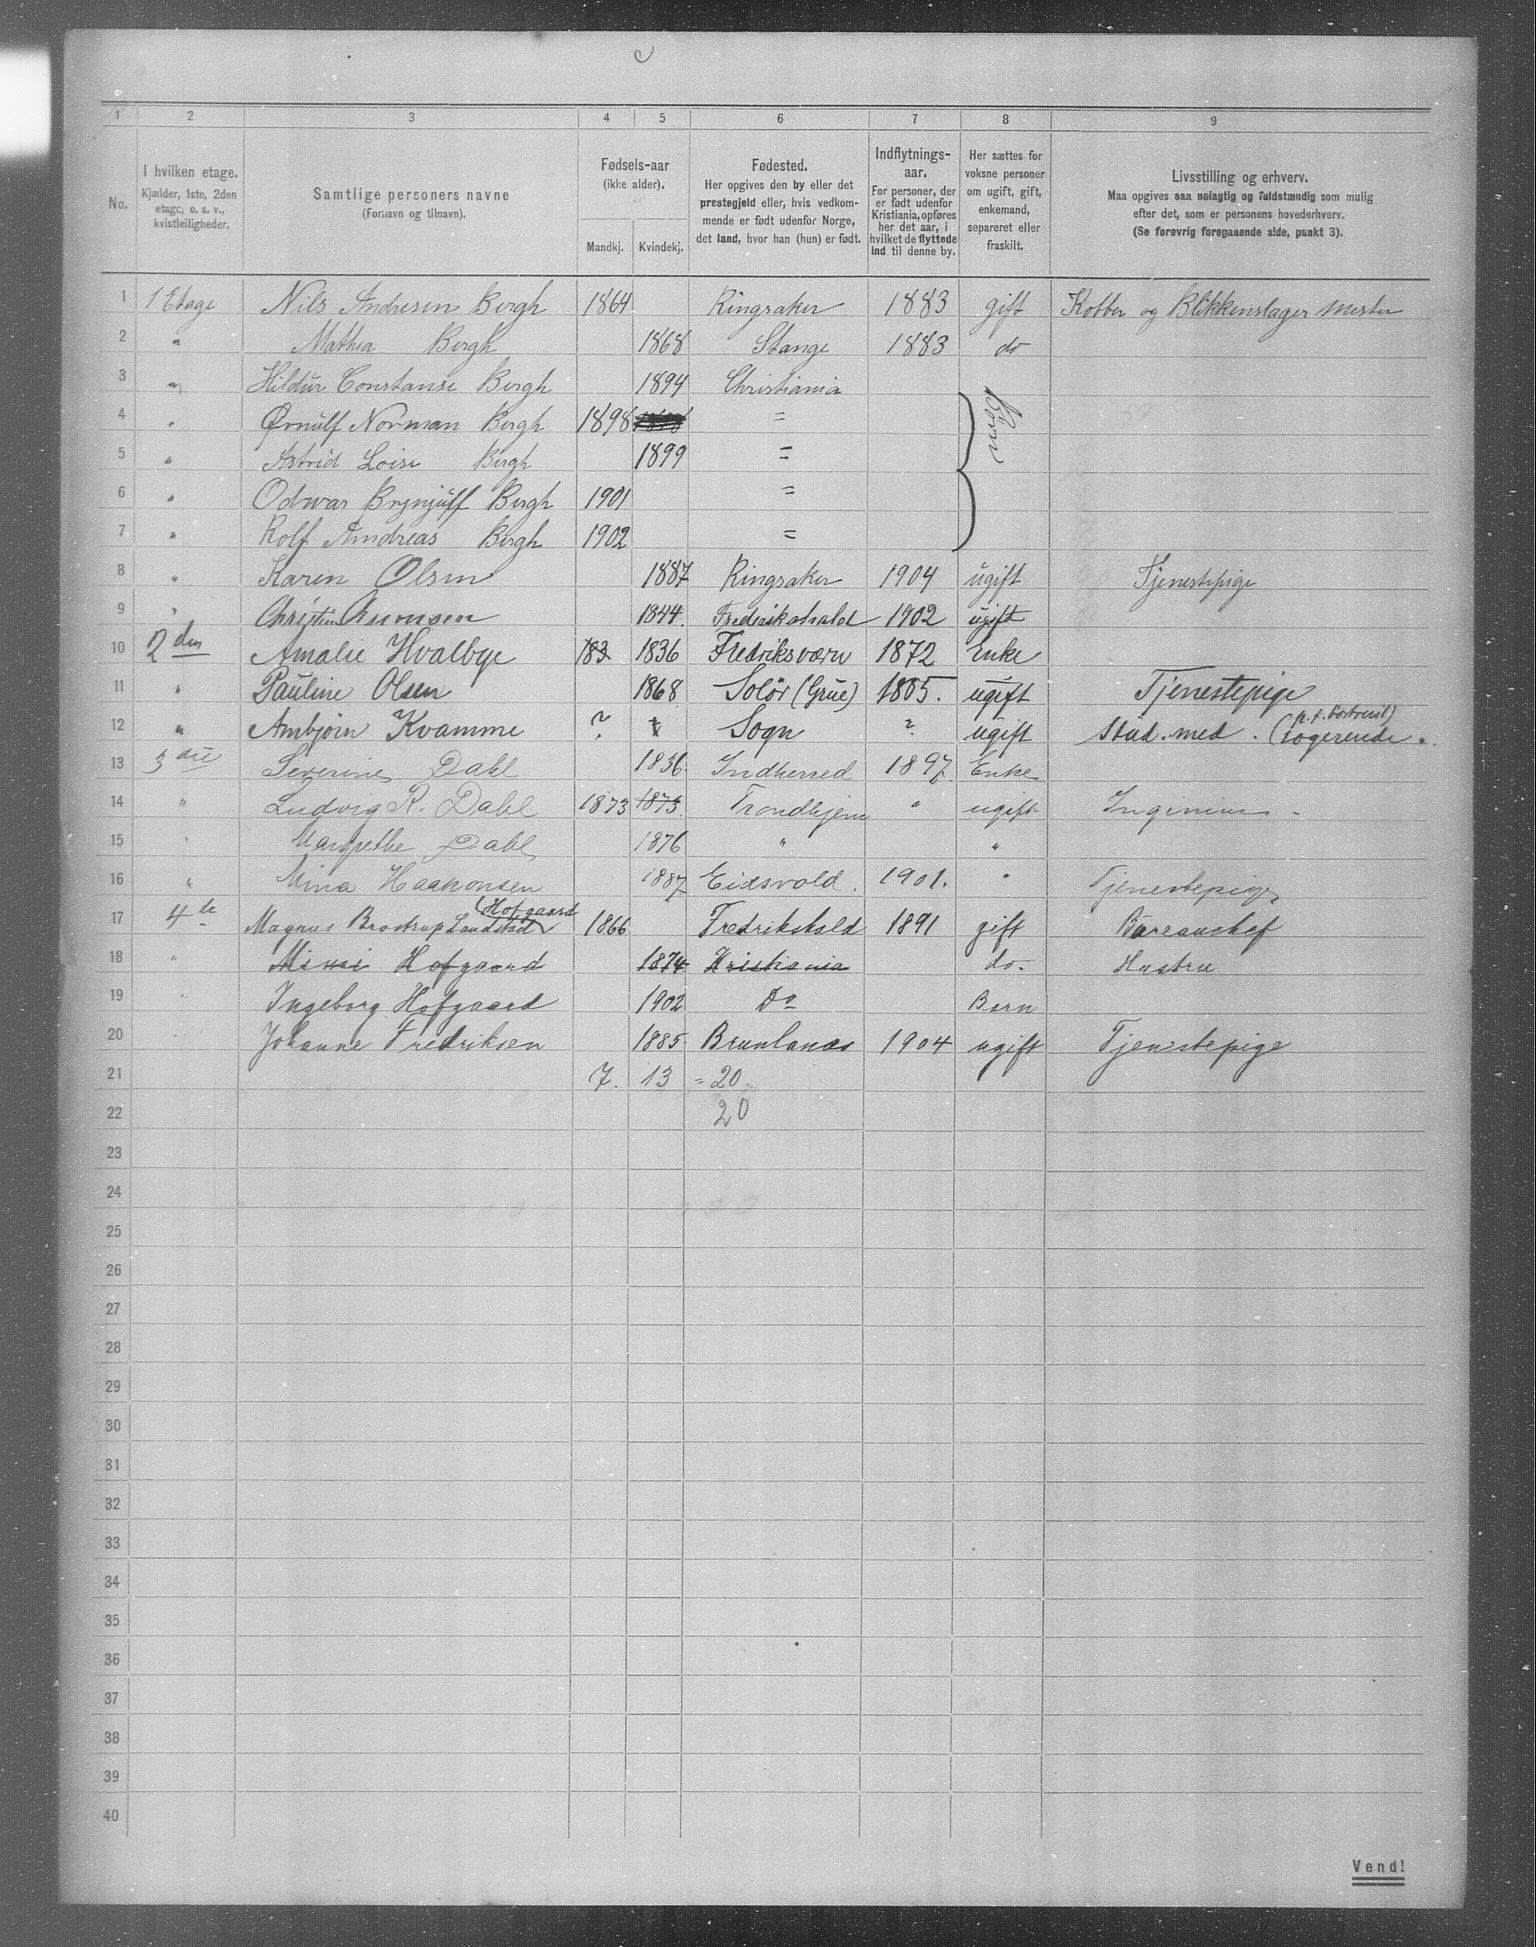 1 2 3 4 5 6 7 8 9
No.
I hvilken etage. Kjælder, 1ste, 2den etage, o. s. v., kvistleiligheder.
Samtlige personers navne (Fornavn og tilnavn).
Fødsels-aar (ikke alder).
Mandkj. Kvindekj.
Fødested. Her opgives den by eller det prestegjeld eller, hvis vedkommende er født udenfor Norge, det land, hvor han (hun) er født.
Indflytnings-aar. For personer, der er født udenfor Kristiania, opføres her det aar, i hvilket de flyttede ind til denne by.
Her sættes for voksne personer om ugift, gift, enkemand, separeret eller fraskilt.
Livsstilling og erhverv. Maa opgives saa nøiagtig og fuldstændig som mulig efter det, som er personens hovederhverv. (Se forøvrig foregaaende side, punkt 3).
1 1 Etage Nils Andresen Bergh 1864 Ringsaker 1883 gift Kobber og Blikkenslager mester
2 " Mathea Bergh 1868 Stange 1883 do
3 " Hildur Constanse Bergh 1894 Christiania
4 " Ørnulf Norman Bergh 1898 = Børn
5 " Astrid Loise Bergh 1899 =
6 " Odwar Brynjulf Bergh 1901 =
7 " Rolf Andreas Bergh 1902 =
8 " Karen Olsen 1887 Ringsaker 1904 ugift Tjenestepige
9 " Christine 1844. Frederikshald 1902 ugift
10 2den Amalie Hvalbye 183 1836 Fredriksværn 1872 Enke
11 " Pauline Olsen 1868 Solör (Grue) 1885. ugift Tjenestepige
12 " Ambjörn Kvamme ? Sogn ? ugift Stud. med. (p. t. bortreist) Logerende.
13 3die Severine Dahl 1836. Indherred 1897. Enke
14 " Ludvig R. Dahl 1873 1873. Trondhjem " ugift Ingeniør
15 " Margrethe Dahl 1876 " "
16 " Mina Haakonsen 1887 Eidsvold. 1901. " Tjenestepige
17 4de Magnus Brostrup Landstad (Hofgaard 1866 Fredrikshald 1891 gift Bureauchef
18 " Mimi Hofgaard 1874 Kristiania do. Hustru
19 " Ingeborg Hofgaard 1902 Do Barn
20 Johanne Fredriksen 1885 Brunlanæs 1904 ugift Tjenestepige
21 7. 13 = 20.
22 20
23
24
25
26
27
28
29
30
31
32
33
34
35
36
37
38
39
40
Vend!